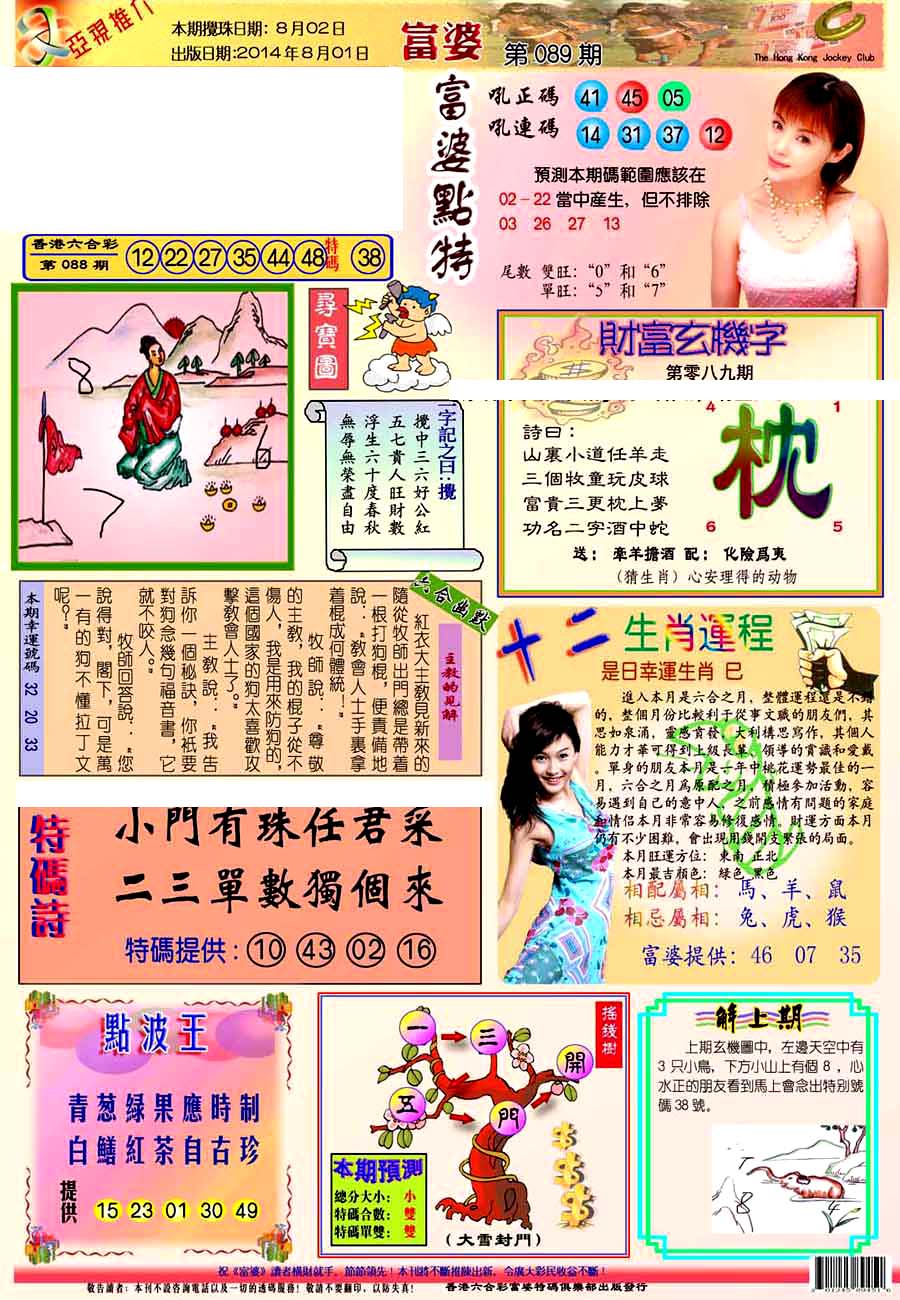 亞視推介
本期攪珠日期: 8月02日
出版日期:2014年8月01日
富婆 第089期
The Hong Kong Jockey Club
富婆點特
吼正碼 41 45 05
吼連碼 14 31 37 12
預測本期碼範圍應該在
02－22 當中産生，但不排除
03 26 27 13
尾數 雙旺：“0”和“6”
單旺：“5”和“7”
香港六合彩
第 088 期
12 22 27 35 44 48 特碼 38
尋寶圖
一字記之曰：攪
攪中三六好公紅
五七貴人旺財數
浮生六十度春秋
無辱無榮盡自由
財富玄機字
第零八九期
4 1
枕
6 5
詩曰：
山裏小道任羊走
三個牧童玩皮球
富貴三更枕上夢
功名二字酒中蛇
送：牽羊擔酒 配：化險爲夷
（猜生肖）心安理得的动物
六合幽默
主教的見解
紅衣大主教見新來的
隨從牧師出門總是帶着
一根打狗棍，便責備地
説：“教會人士手裏拿
着棍成何體統！”
牧師説：“尊敬
的主教，我的棍子從不
傷人，我是用來防狗的，
這個國家的狗太喜歡攻
擊教會人士了。”
主教説：“我告
訴你一個秘訣，你衹要
對狗念幾句福音書，它
就不咬人。”
牧師回答説：“您
説得對，閣下，可是萬
一有的狗不懂拉丁文
呢？”
本期幸運號碼 32 20 33
十二生肖運程
是日幸運生肖 巳
進入本月是六合之月，整體運程還是不錯
的，整個月份比較利于從事文職的朋友們，其
思如泉涌，靈感賁發，大利構思寫作，其個人
能力才華可得到上級長輩、領導的賞識和愛戴
。單身的朋友本月是一年中桃花運勢最佳的一
月，六合之月爲原配之月，積極參加活動，容
易遇到自己的意中人，之前感情有問題的家庭
和情侣本月非常容易修復感情。財運方面本月
仍有不少困難，會出現用錢開支緊張的局面。
本月旺運方位：東南 正北
本月最吉顏色：綠色 黑色
相配屬相：馬、羊、鼠
相忌屬相：兔、虎、猴
富婆提供：46 07 35
特碼詩
小門有珠任君采
二三單數獨個來
特碼提供：10 43 02 16
點波王
青葱绿果應時制
白鱔紅茶自古珍
提供 15 23 01 30 49
搖錢樹
一 三 開
五 門
本期預測
總分大小：小
特碼合數：雙
特碼單雙：雙
（大雪封門）
解上期
上期玄機圖中，左邊天空中有
3 只小鳥，下方小山上有個 8 ，心
水正的朋友看到馬上會念出特別號
碼 38 號。
祝《富婆》讀者橫財就手，節節領先！本刊將不斷推陳出新，令廣大彩民收益不斷！
敬告讀者：本刊不設咨詢電話以及一切的透碼服務！敬請不要翻印，以防失真！
香港六合彩富婆特碼俱樂部出版發行